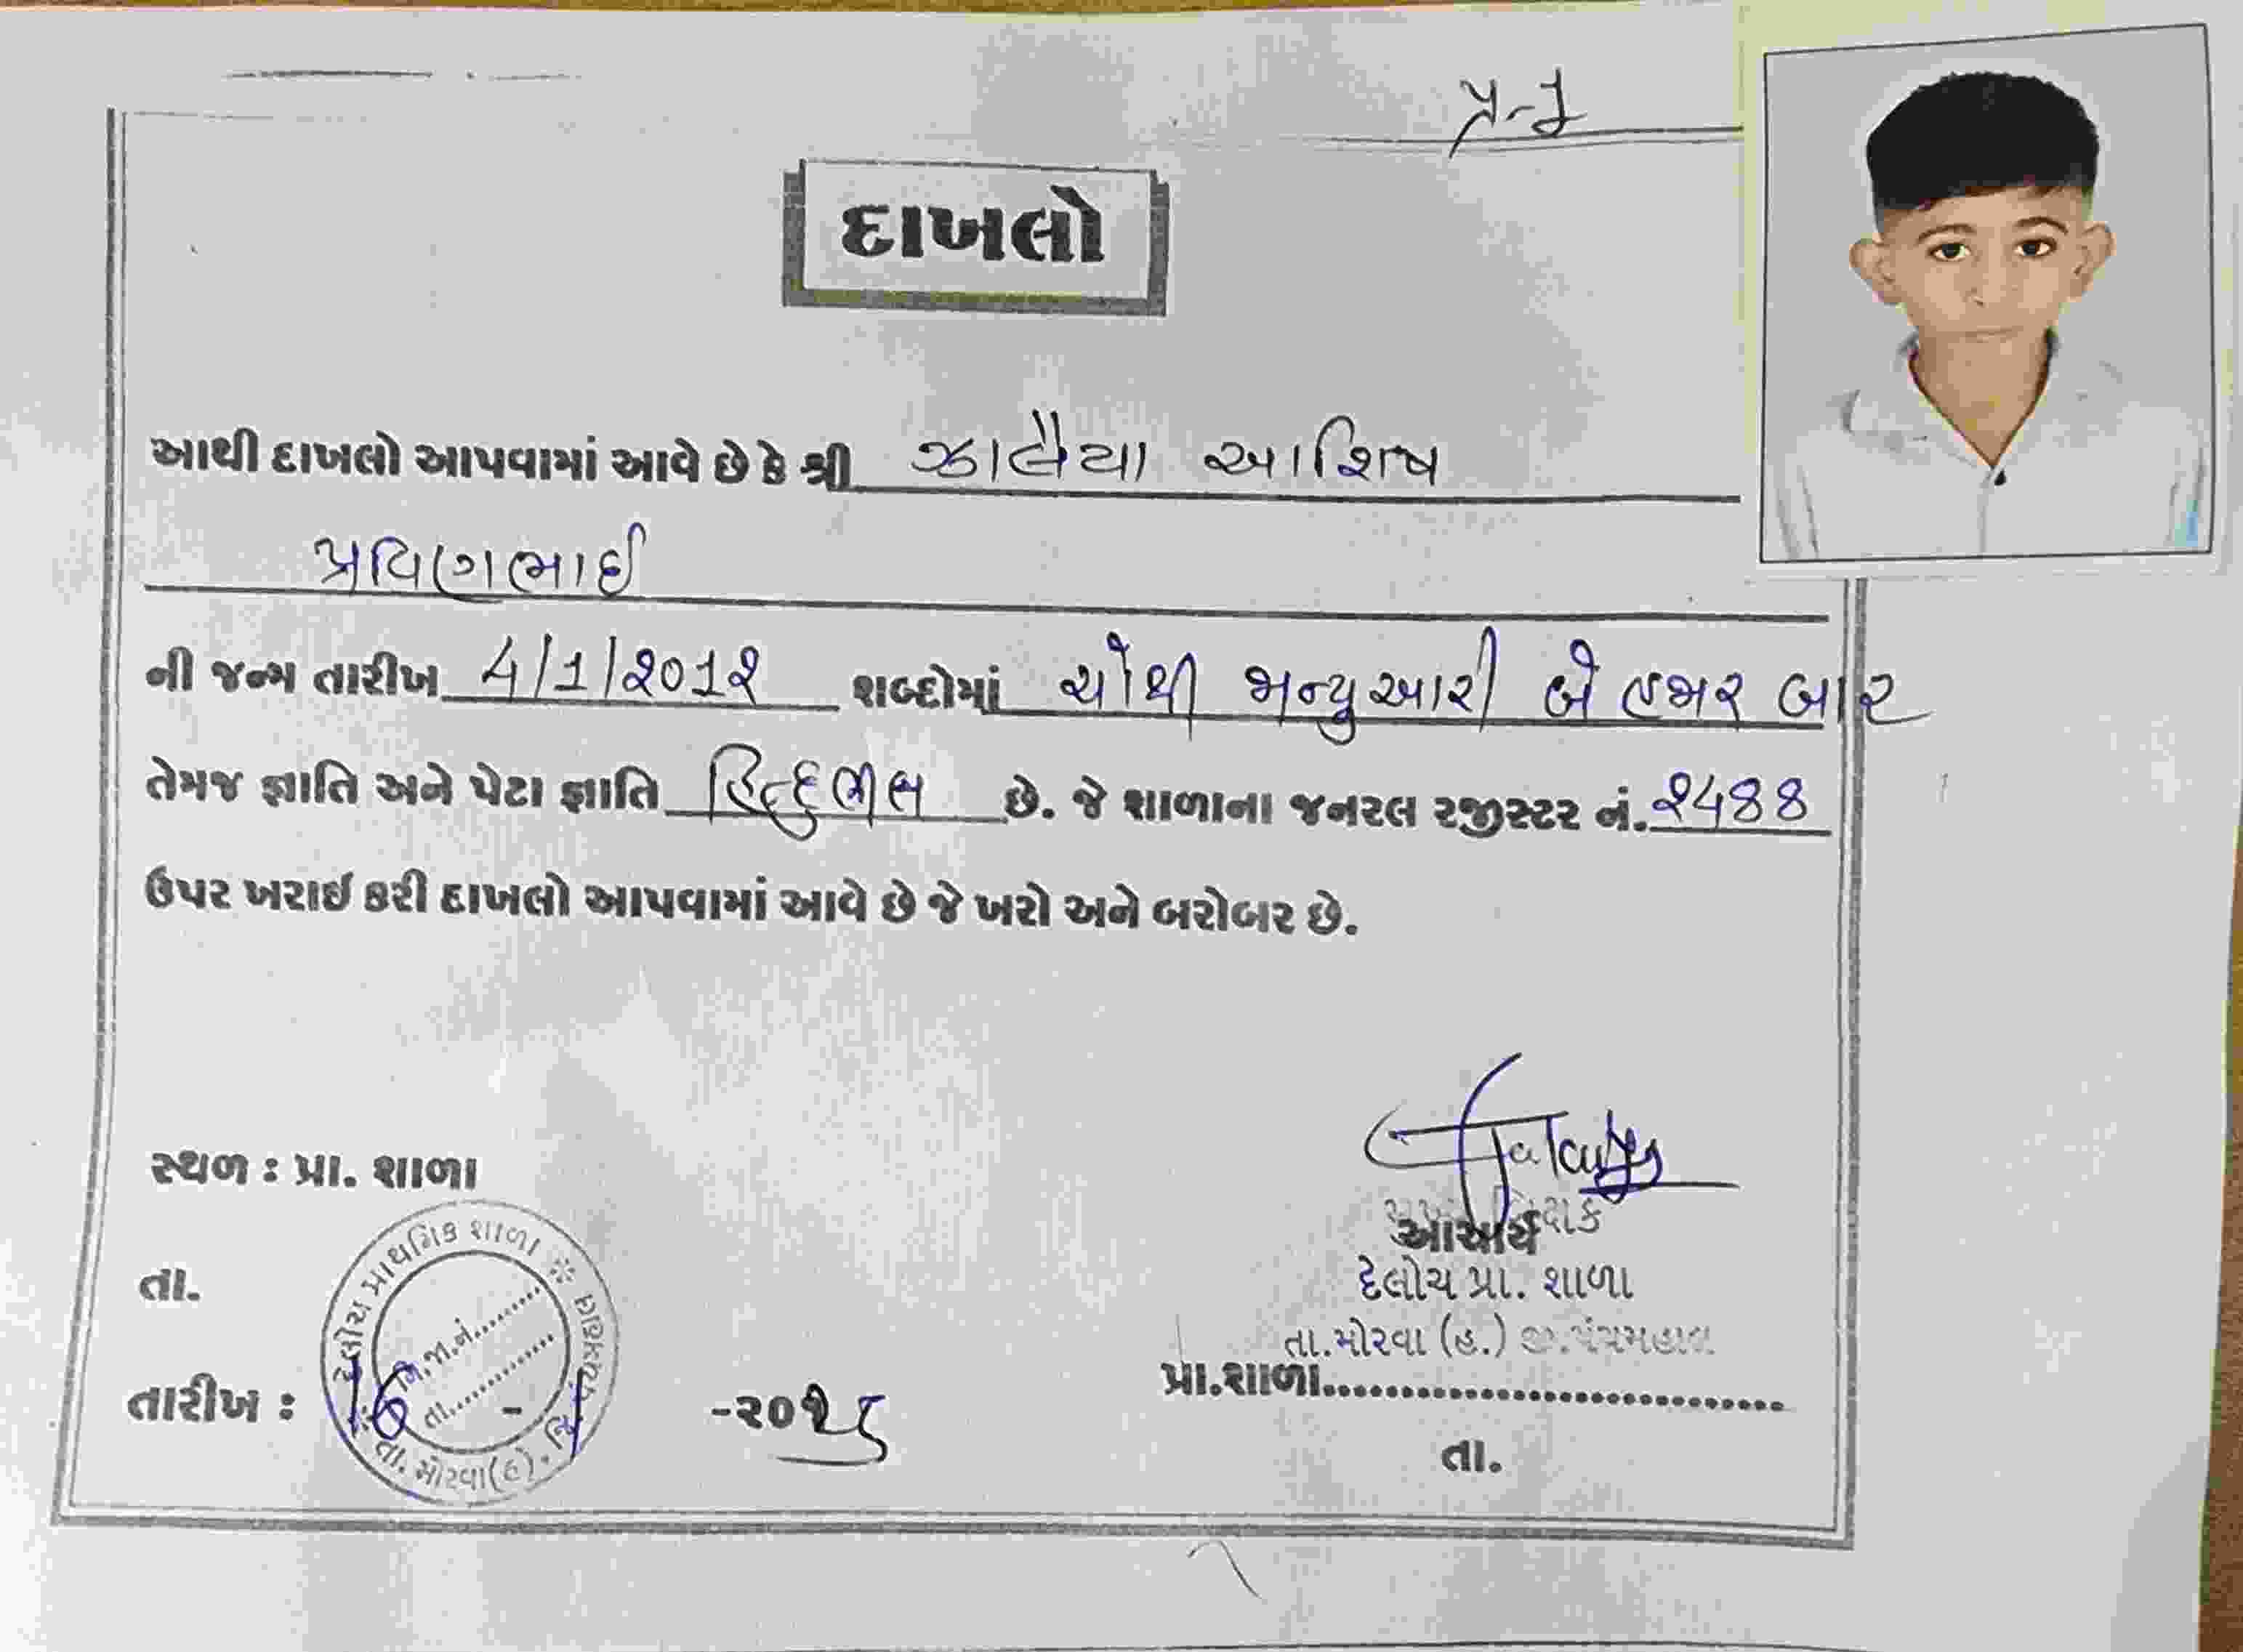 દાખલો
આથી દાખલો આપવામાં આવે છે કે શ્રી ઝાલૈયા આશિષ
પ્રવિણભાઈ
ની જન્મ તારીખ 4/1/૨01૨ શબ્દોમાં ચોથી જાન્યુઆરી બે હજાર બાર
તેમજ જ્ઞાતિ અને પેટા જ્ઞાતિ હિન્દુભીલ છે. જે શાળાના જનરલ રજીસ્ટર નં. ૨488
ઉપર ખરાઈ કરી દાખલો આપવામાં આવે છે જે ખરો અને બરોબર છે.
સ્થળ : પ્રા. શાળા
આચાર્ય
તા.
દેલોચ પ્રા. શાળા
તા.મોરવા (હ.) જી.પંચમહાલ
પ્રા.શાળા..............................
તારીખ : 16 - 1 -૨૦૨૬
તા.
દેલોચ પ્રાથમિક શાળા * પંચમહાલ
નિ.જા.નં.........
તા............
તા. મોરવા(હ). જિ.